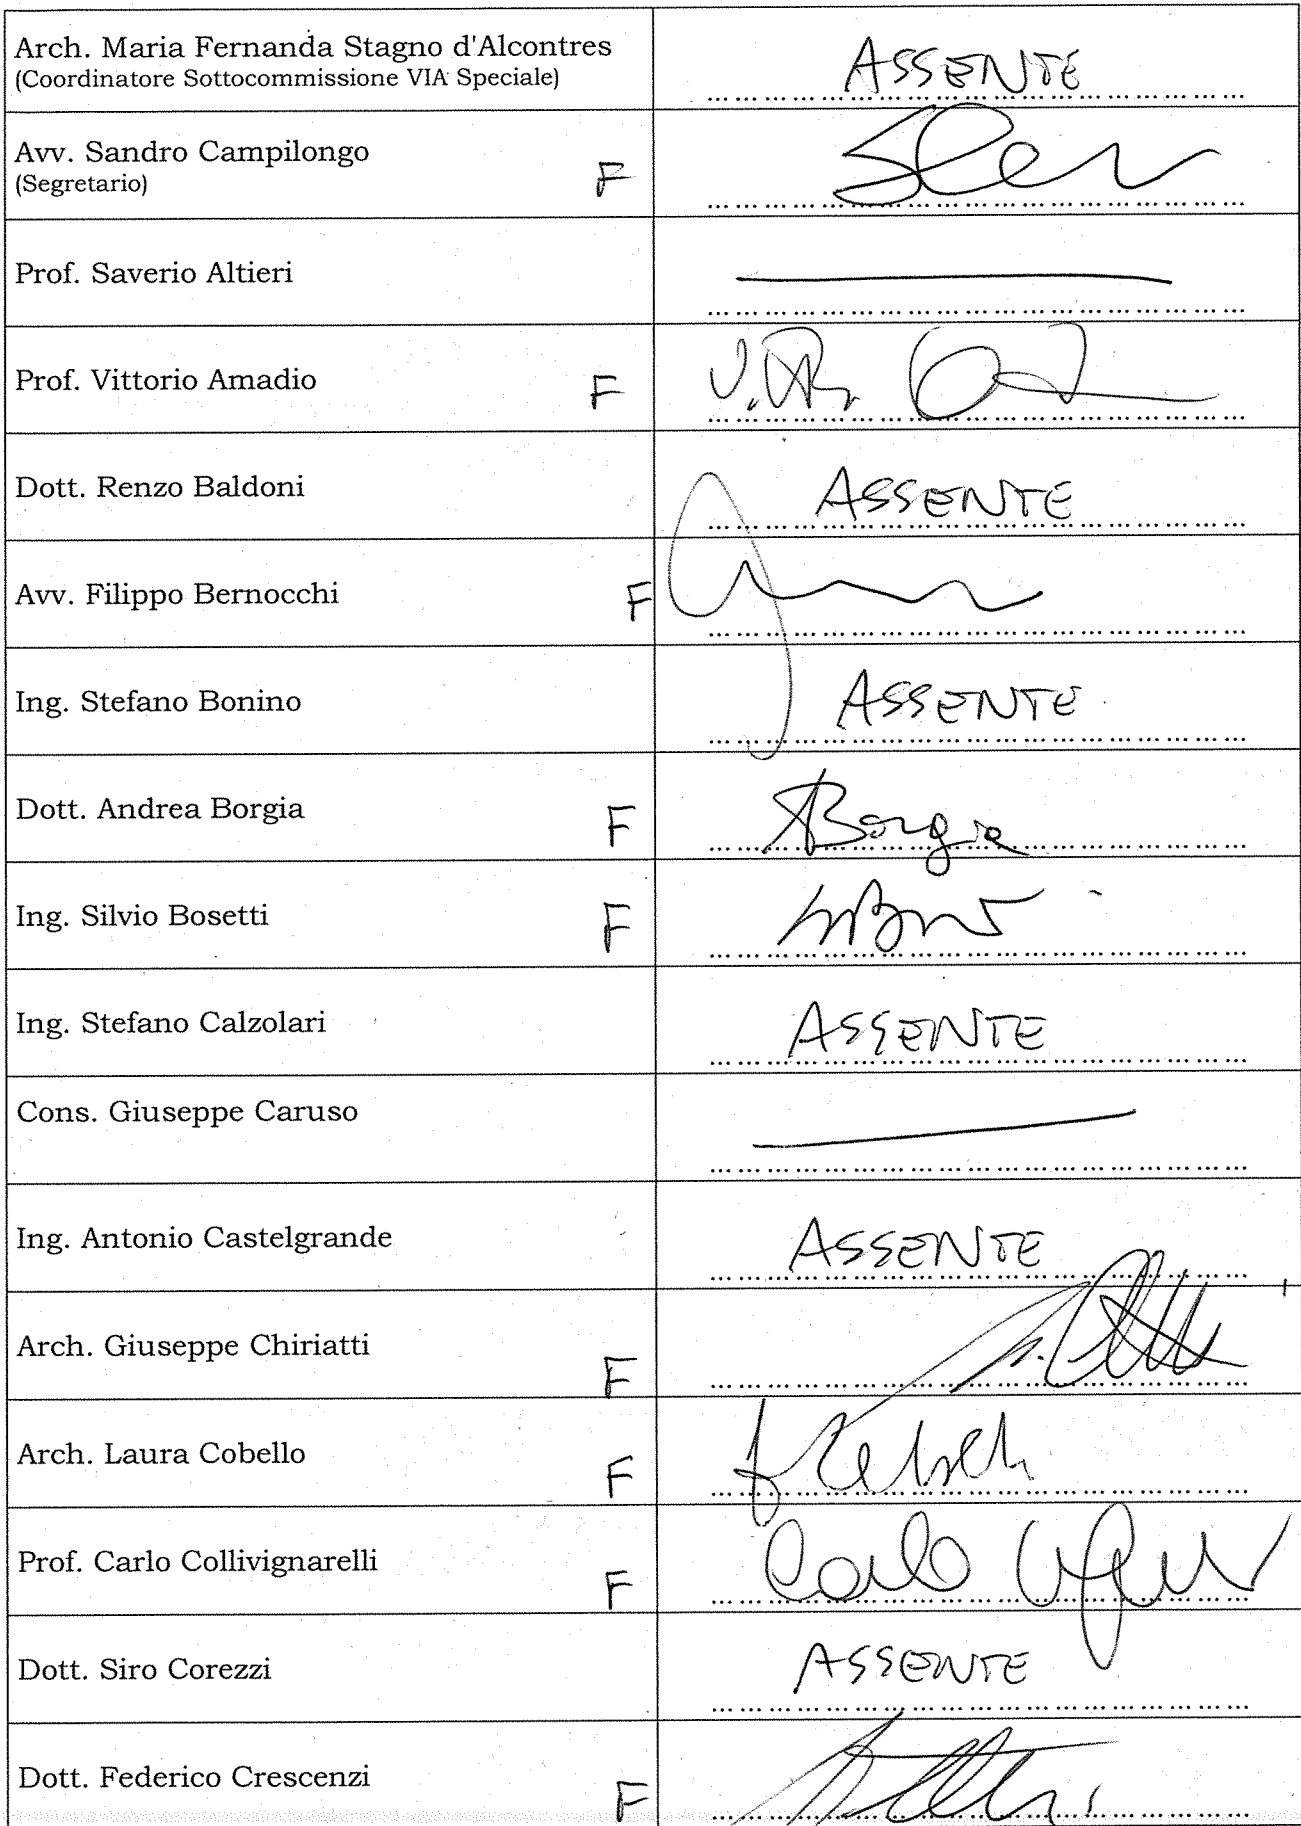 Arch. Maria Fernanda Stagno d'Alcontres
(Coordinatore Sottocommissione VIA Speciale)
ASSENTE
Avv. Sandro Campilongo
(Segretario)
F
Prof. Saverio Altieri
Prof. Vittorio Amadio
F
Dott. Renzo Baldoni
ASSENTE
Avv. Filippo Bernocchi
F
Ing. Stefano Bonino
ASSENTE
Dott. Andrea Borgia
F
ABorgia
Ing. Silvio Bosetti
F
Ing. Stefano Calzolari
ASSENTE
Cons. Giuseppe Caruso
Ing. Antonio Castelgrande
ASSENTE
Arch. Giuseppe Chiriatti
F
Arch. Laura Cobello
F
Prof. Carlo Collivignarelli
F
Carlo
Dott. Siro Corezzi
ASSENTE
Dott. Federico Crescenzi
F